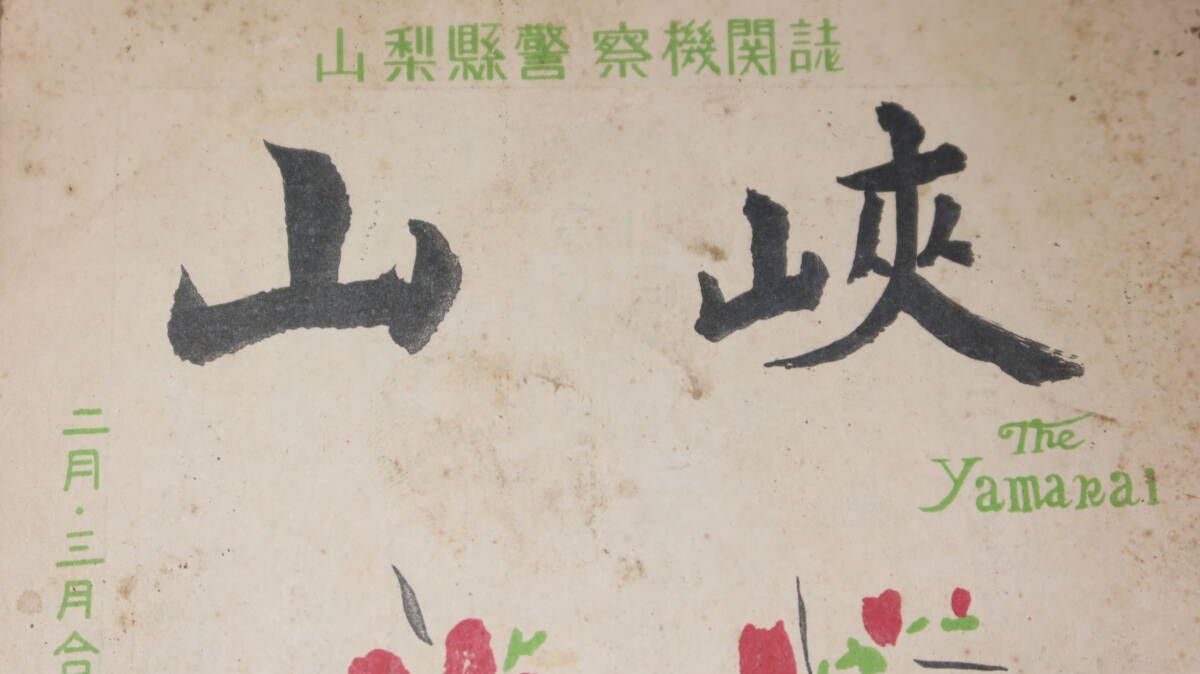 山梨縣警察機関誌
山峽
The
Yamakai
二月・三月合